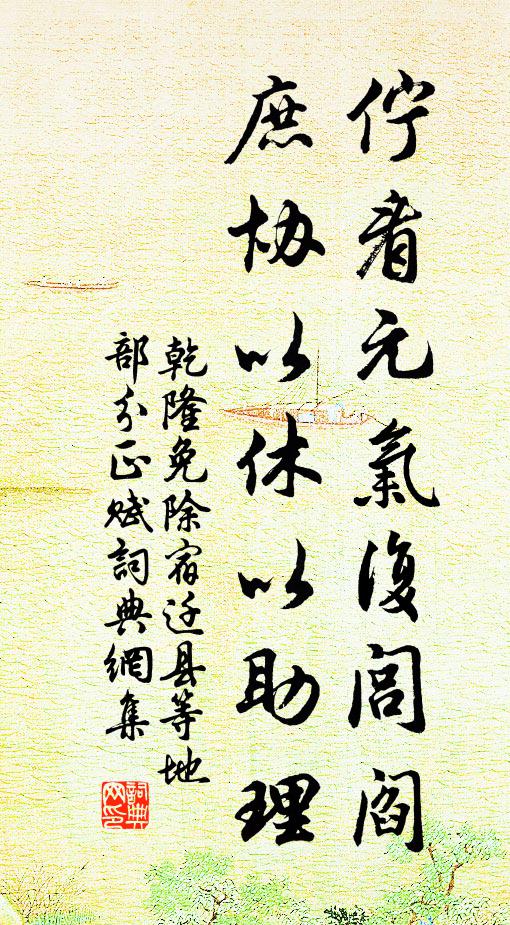 佇看元氣復閭閻
庶協以休以助理
乾隆免除宿迁县等地
部分正赋詞典網集
詞典网印